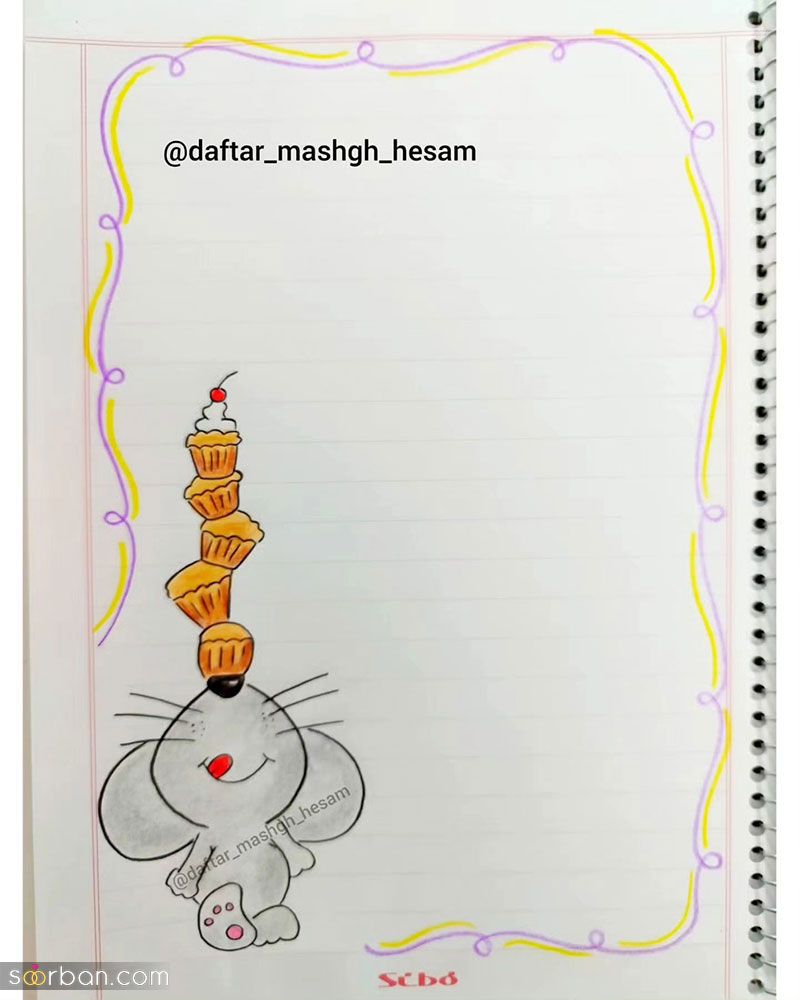 @daftar_mashgh_hesam
@daftar_mashgh_hesam
soorban.com
Sibo